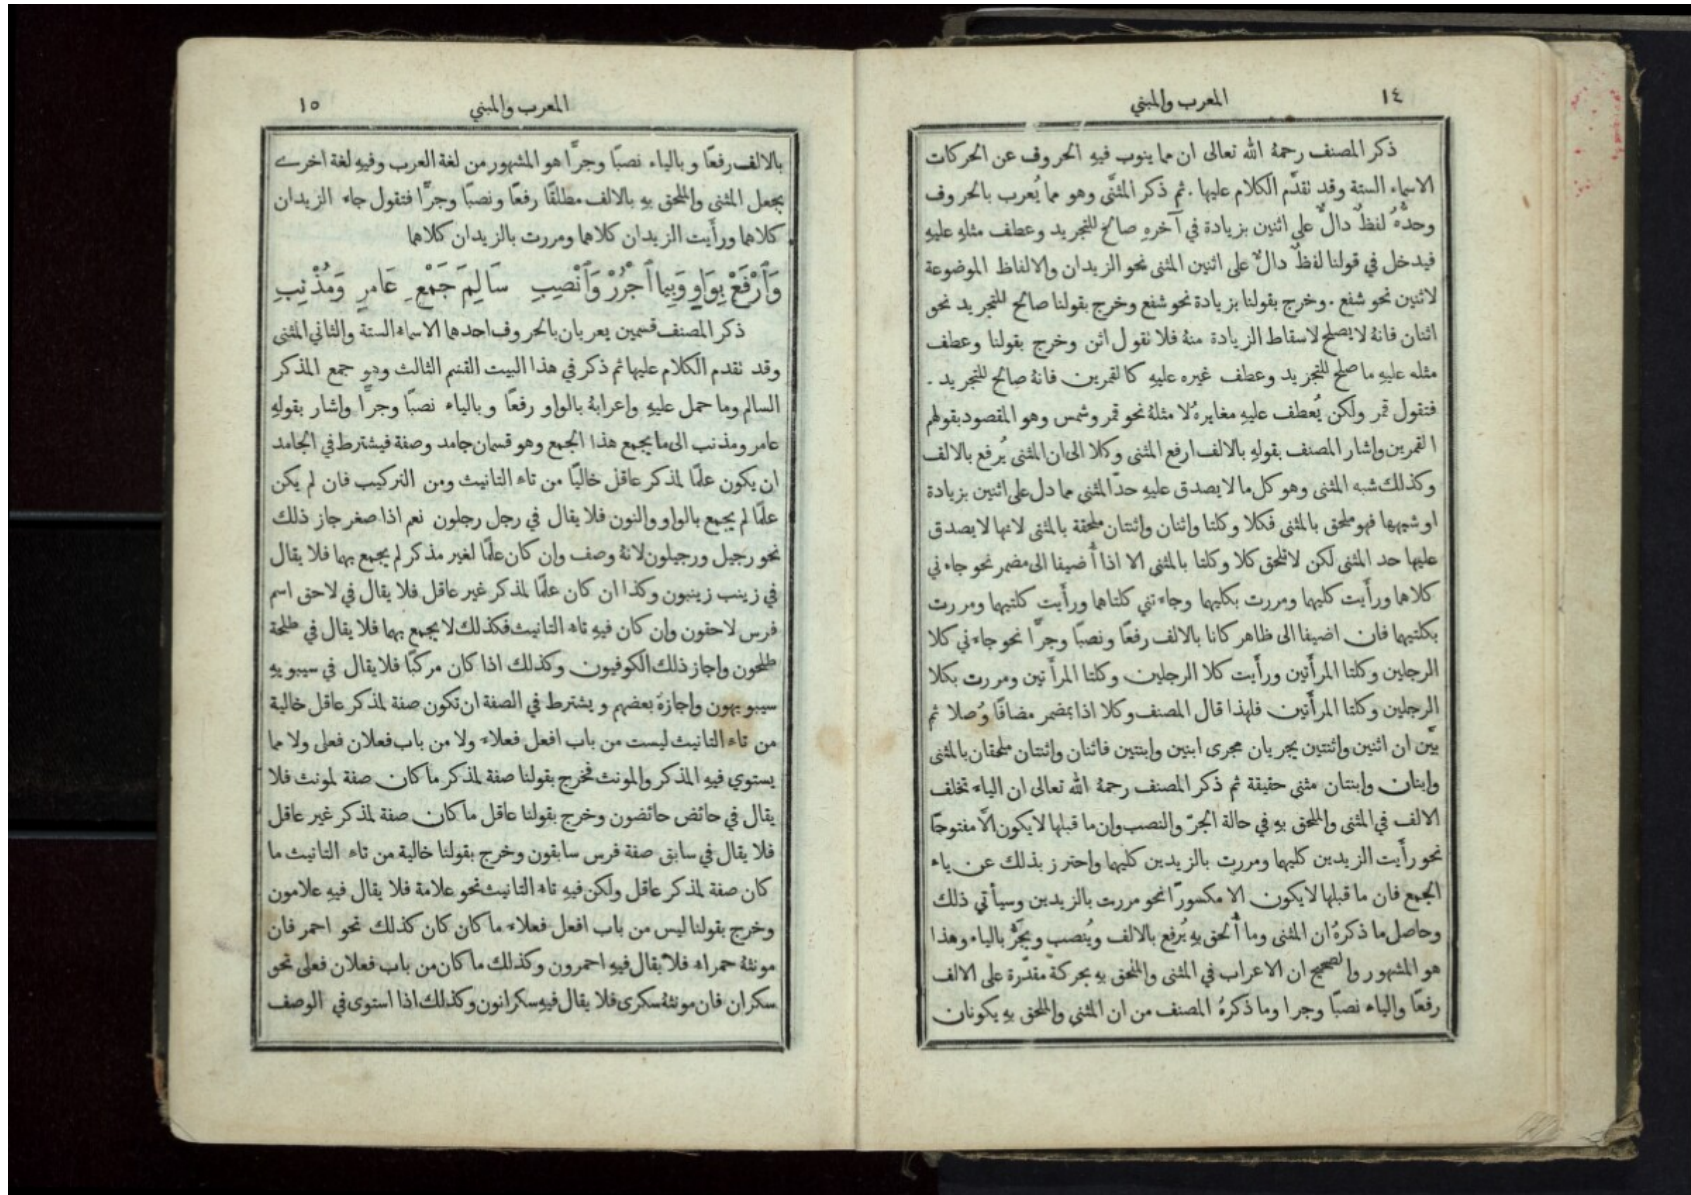 ١٤
المعرب والمبني
ذكر المصنف رحمهُ الله تعالى ان مما ينوب فيهِ الحروف عن الحركات
الاسماء الستة وقد نقدّم الكلام عليها . ثم ذكر المثنَّى وهو مما يُعرب بالحروف
وحدُّهُ لفظٌ دالٌّ على اثنين بزيادة في آخرهِ صالحٌ للتجريد وعطف مثلهِ عليهِ
فيدخل في قولنا لفظٌ دالٌّ على اثنين المثنى نحو الزيدان والالفاظ الموضوعة
لاثنين نحو شفع . وخرج بقولنا بزيادة نحو شفع وخرج بقولنا صالح للتجريد نحو
اثنان فانهُ لا يصلح لاسقاط الزيادة منهُ فلا نقول اثن وخرج بقولنا وعطف
مثله عليهِ ما صلح للتجريد وعطف غيره عليهِ كالقمرين فانهُ صالح للتجريد .
فتقول قمر ولكن يُعطف عليهِ مغايرهُ لا مثلهُ نحو قمر وشمس وهو المقصود بقولهم
القمرين واشار المصنف بقولهِ بالالف ارفع المثنى وكلا الى ان المثنى يُرفع بالالف
وكذلك شبه المثنى وهو كل ما لا يصدق عليهِ حدّ المثنى مما دل على اثنين بزيادة
او شبهها فهو ملحق بالمثنى فكلا وكلتا واثنان واثنتان ملحقة بالمثنى لانها لا يصدق
عليها حد المثنى لكن لا تلحق كلا وكلتا بالمثنى الا اذا أُضيفا الى مضمر نحو جاءني
كلاهما ورأَيت كليهما ومررت بكليهما وجاءتني كلتاهما ورأَيت كلتيهما ومررت
بكلتيهما فان اضيفا الى ظاهر كانا بالالف رفعًا ونصبًا وجرًّا نحو جاءني كلا
الرجلين وكلتا المرأَتين ورأَيت كلا الرجلين وكلتا المرأَتين ومررت بكلا
الرجلين وكلتا المرأَتين فلهذا قال المصنف وكلا اذا بمضمر مضافًا وُصلا ثم
بيَّن ان اثنين واثنتين يجريان مجرى ابنين وابنتين فاثنان واثنتان ملحقان بالمثنى
وابنان وابنتان مثنى حقيقة ثم ذكر المصنف رحمهُ الله تعالى ان الياء تخلف
الالف في المثنى والملحق بهِ في حالة الجرّ والنصب وان ما قبلها لا يكون الَّا مفتوحًا
نحو رأَيت الزيدين كليهما ومررت بالزيدين كليهما واحترز بذلك عن ياء
الجمع فان ما قبلها لا يكون الا مكسورًا نحو مررت بالزيدين وسيأتي ذلك
وحاصل ما ذكرهُ ان المثنى وما أُلحق بهِ يُرفع بالالف ويُنصب ويجَرُّ بالياء وهذا
هو المشهور والصحيح ان الاعراب في المثنى والملحق بهِ بحركة مقدّرة على الالف
رفعًا والياء نصبًا وجرا وما ذكرهُ المصنف من ان المثني والملحق بهِ يكونان
١٥
المعرب والمبني
بالالف رفعًا وبالياء نصبًا وجرًّا هو المشهور من لغة العرب وفيهِ لغة اخرى
يجعل المثنى والملحق بهِ بالالف مطلقًا رفعًا ونصبًا وجرًّا فتقول جاء الزيدان
كلاهما ورأَيت الزيدان كلاهما ومررت بالزيدان كلاهما
وَٱرْفَعْ بِوَاوٍ وَبِيا ٱجْرُرْ وَٱنْصِبِ سَالِمَ جَمْعِ عَامِرٍ وَمُذْنِبِ
ذكر المصنف قسمين يعربان بالحروف احدهما الاسماء الستة والثاني المثنى
وقد نقدم الكلام عليها ثم ذكر في هذا البيت القسم الثالث وهو جمع المذكر
السالم وما حمل عليهِ واعرابهُ بالواو رفعًا وبالياء نصبًا وجرًّا واشار بقولهِ
عامر ومذنب الى ما يجمع هذا الجمع وهو قسمان جامد وصفة فيشترط في الجامد
ان يكون علمًا لمذكر عاقل خاليًا من تاء التانيث ومن التركيب فان لم يكن
علمًا لم يجمع بالواو والنون فلا يقال في رجل رجلون نعم اذا صغر جاز ذلك
نحو رجيل ورجيلون لانهُ وصف وان كان علمًا لغير مذكر لم يجمع بهما فلا يقال
في زينب زينبون وكذا ان كان علمًا لمذكر غير عاقل فلا يقال في لاحق اسم
فرس لاحقون وان كان فيهِ تاء التانيث فكذلك لا يجمع بهما فلا يقال في طلحة
طلحون واجاز ذلك الكوفيون وكذلك اذا كان مركبًا فلا يقال في سيبويهِ
سيبويهون واجازهُ بعضهم ويشترط في الصفة ان تكون صفة لمذكر عاقل خالية
من تاء التانيث ليست من باب افعل فعلاء ولا من باب فعلان فعلى ولا مما
يستوي فيهِ المذكر والمونث فخرج بقولنا صفة لمذكر ما كان صفة لمونث فلا
يقال في حائض حائضون وخرج بقولنا عاقل ما كان صفة لمذكر غير عاقل
فلا يقال في سابق صفة فرس سابقون وخرج بقولنا خالية من تاء التانيث ما
كان صفة لمذكر عاقل ولكن فيهِ تاء التانيث نحو علامة فلا يقال فيهِ علامون
وخرج بقولنا ليس من باب افعل فعلاء ما كان كان كذلك نحو احمر فان
مونثهُ حمراء فلا يقال فيهِ احمرون وكذلك ما كان من باب فعلان فعلى نحو
سكران فان مونثهُ سكرى فلا يقال فيهِ سكرانون وكذلك اذا استوى في الوصف